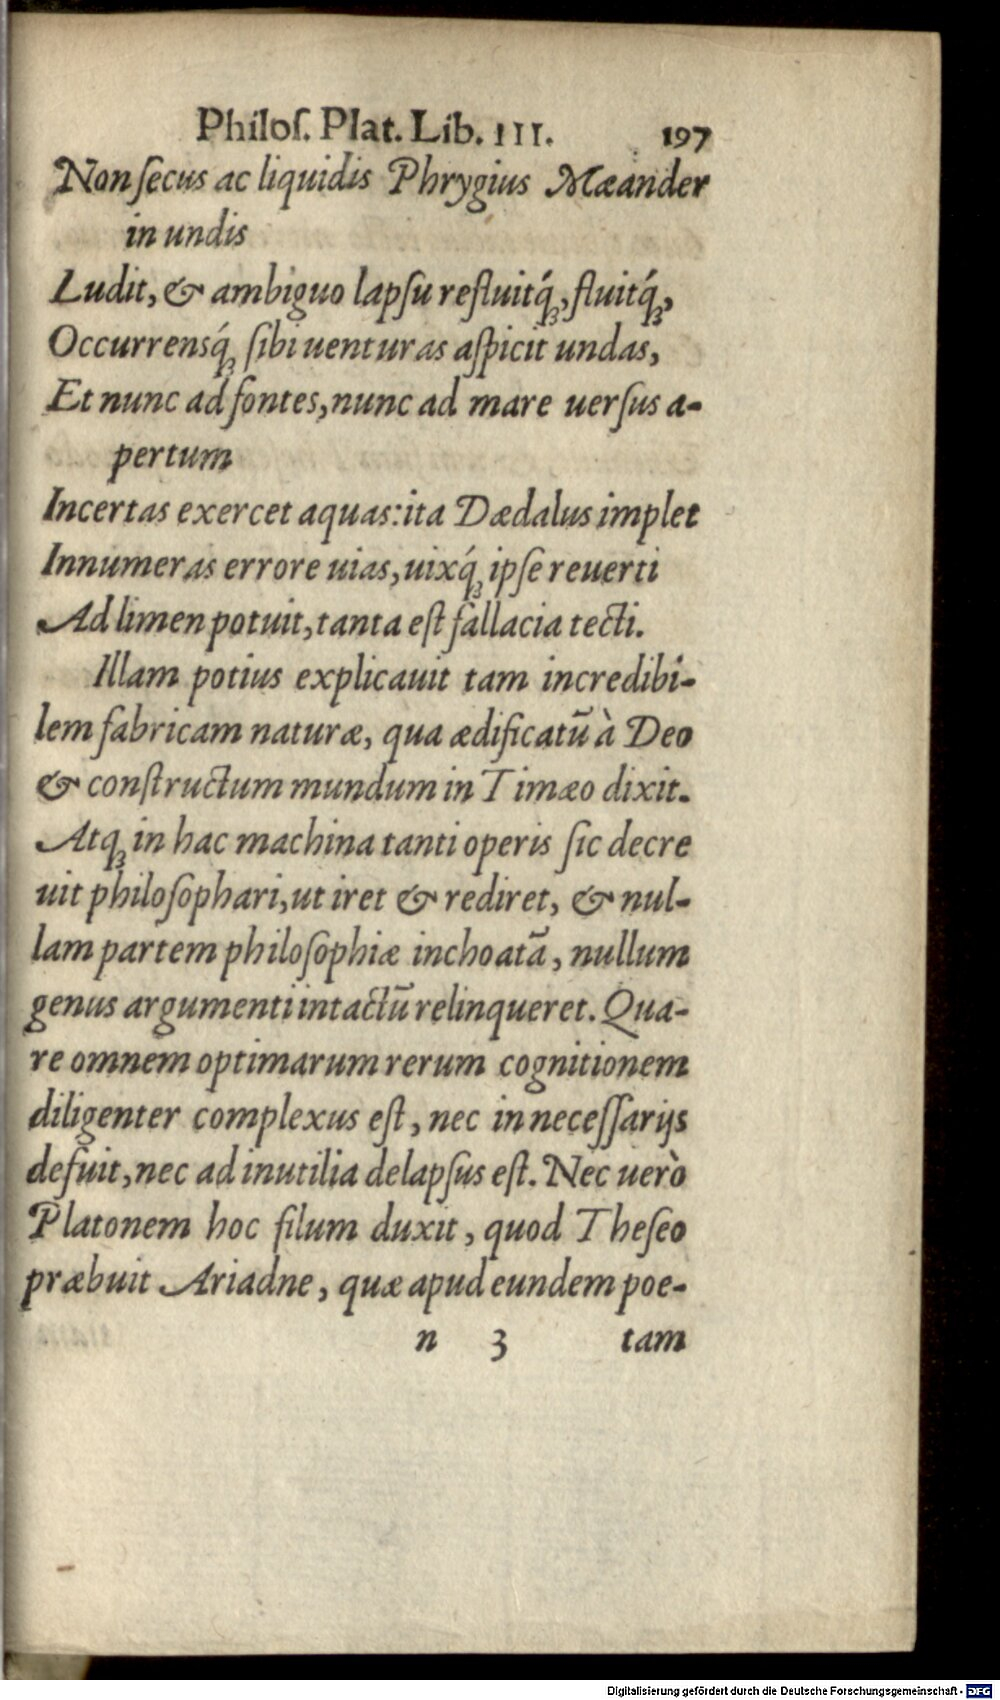 Philoſ. Plat. Lib. III. 197
Non ſecus ac liquidis Phrygius Mæander
in undis
Ludit, & ambiguo lapſu refluitq́ꝫ, fluitq́ꝫ,
Occurrensq́ꝫ ſibi uenturas aſpicit undas,
Et nunc ad fontes, nunc ad mare uerſus a-
pertum
Incertas exercet aquas: ita Dædalus implet
Innumeras errore uias, uixq́ꝫ ipſe reuerti
Ad limen potuit, tanta eſt fallacia tecti.
Illam potius explicauit tam incredibi-
lem fabricam naturæ, qua ædificatū à Deo
& conſtructum mundum in Timæo dixit.
Atqꝫ in hac machina tanti operis ſic decre
uit philoſophari, ut iret & rediret, & nul-
lam partem philoſophiæ inchoatā, nullum
genus argumenti intactū relinqueret. Qua-
re omnem optimarum rerum cognitionem
diligenter complexus eſt, nec in neceſſarijs
defuit, nec ad inutilia delapſus eſt. Nec uerò
Platonem hoc filum duxit, quod Theſeo
præbuit Ariadne, quæ apud eundem poe-
n 3 tam
Digitalisierung gefördert durch die Deutsche Forschungsgemeinschaft - DFG